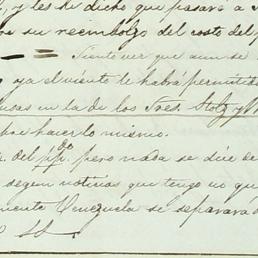 y les he dicho que pasará a
su reembolso del costo del
Siento ver que aun se
ya el viente le habrá permitido
en la de los Sres. Stolz y
hacerlo mismo.
del ppdo. pero nada se dice de
segun noticias que tengo no que
Venezuela se separará